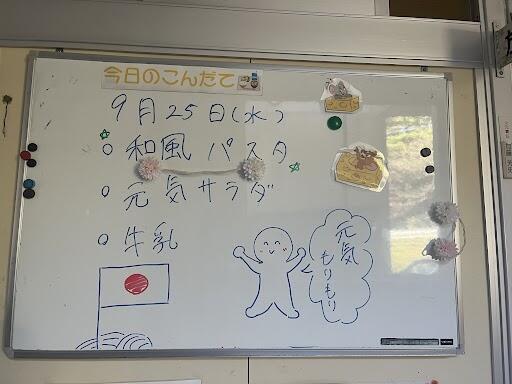 今日のこんだて
9月25日(水)
○ 和風 パスタ
○ 元気サラダ
○ 牛乳
元気
もりもり